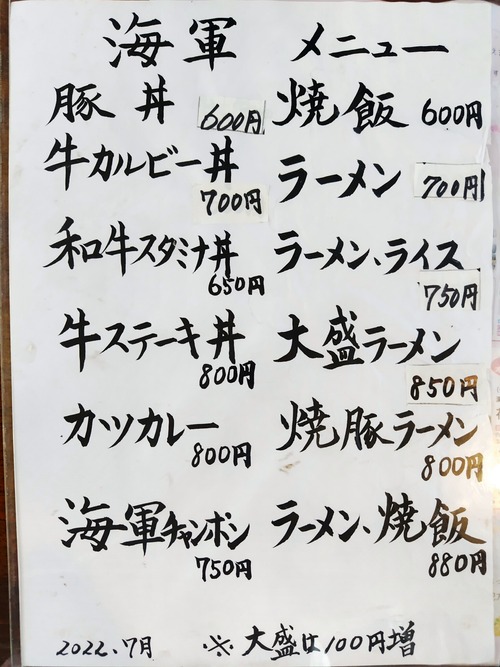 海軍 メニュー
豚丼 600円
牛カルビー丼 700円
和牛スタミナ丼 650円
牛ステーキ丼 800円
カツカレー 800円
海軍チャンポン 750円
焼飯 600円
ラーメン 700円
ラーメン、ライス 750円
大盛ラーメン 850円
焼豚ラーメン 800円
ラーメン、焼飯 880円
2022.7月 ※大盛は100円増